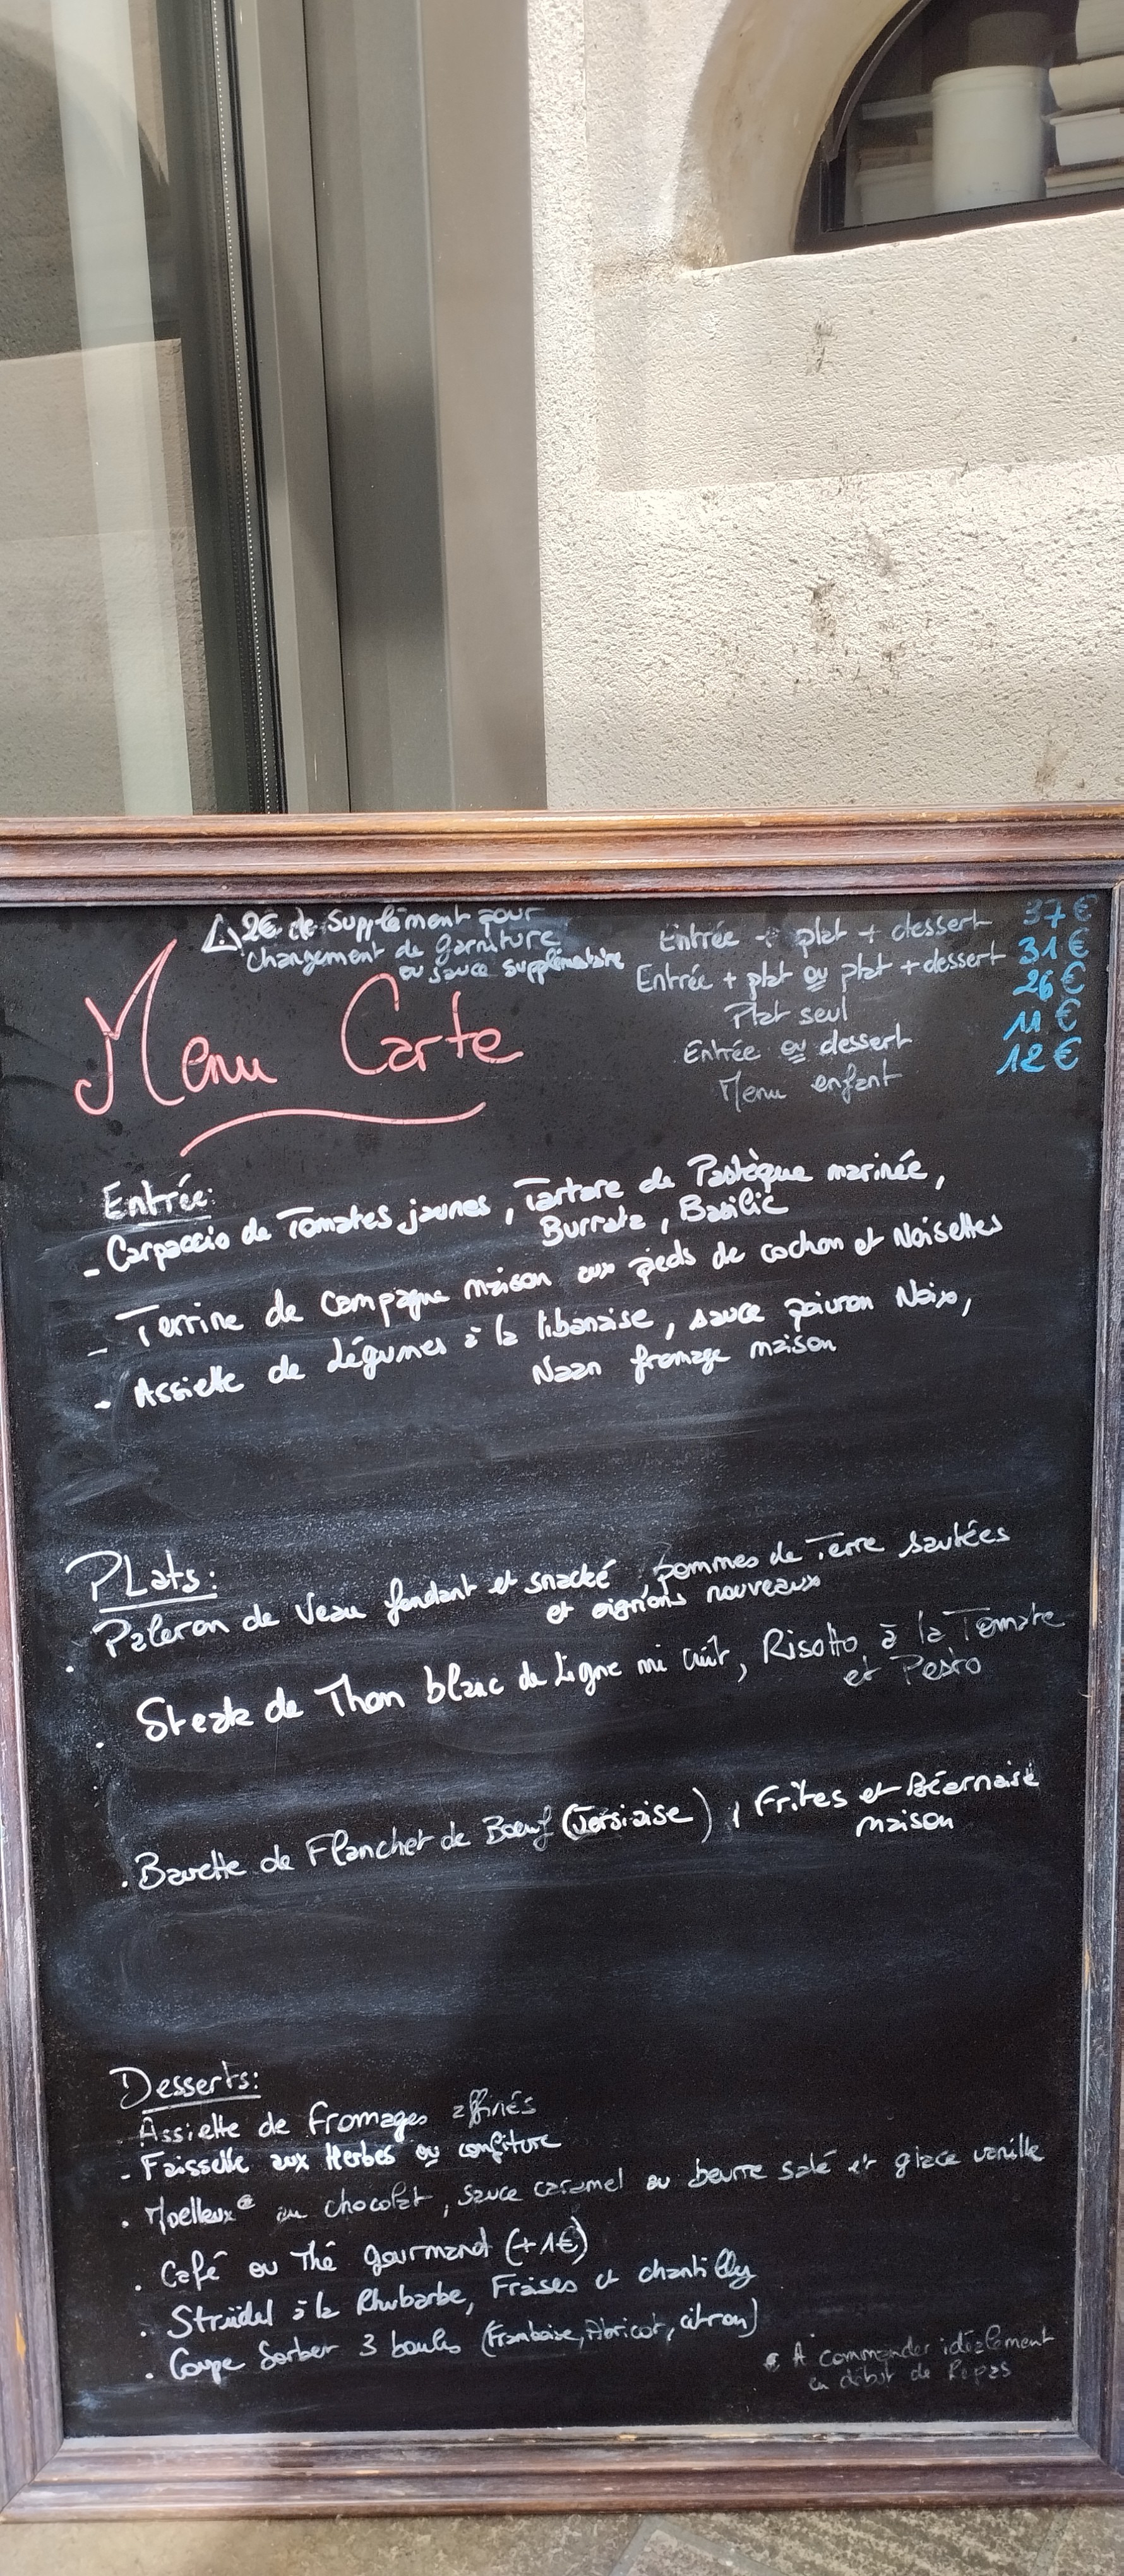 ⚠ 2€ de Supplément pour
changement de garniture
ou sauce supplémentaire
Entrée + plat + dessert 37€
Entrée + plat ou plat + dessert 31€
Plat seul 26€
Entrée ou dessert 11€
Menu enfant 12€
Menu Carte
Entrée:
- Carpaccio de Tomates jaunes, Tartare de Pastèque marinée,
Burrata, Basilic
- Terrine de Campagne maison aux pieds de cochon et Noisettes
- Assiette de Légumes à la libanaise, sauce poivron Noix,
Naan fromage maison
PLats:
. Paleron de Veau fondant et snacké, pommes de Terre sautées
et oignons nouveaux
. Steak de Thon blanc de Ligne mi cuit, Risotto à la Tomate
et Pesto
. Bavette de Flanchet de Bœuf (Jersiaise), Frites et Béarnaise
maison
Desserts:
. Assiette de Fromages affinés
- Faisselle aux Herbes ou confiture
. Moelleux* au chocolat, sauce caramel au beurre salé et glace vanille
. Café ou Thé gourmand (+1€)
. Strüdel à la Rhubarbe, Fraises et chantilly
. Coupe Sorbet 3 boules (Framboise, Abricot, citron)
* A commander idéalement
en début de Repas